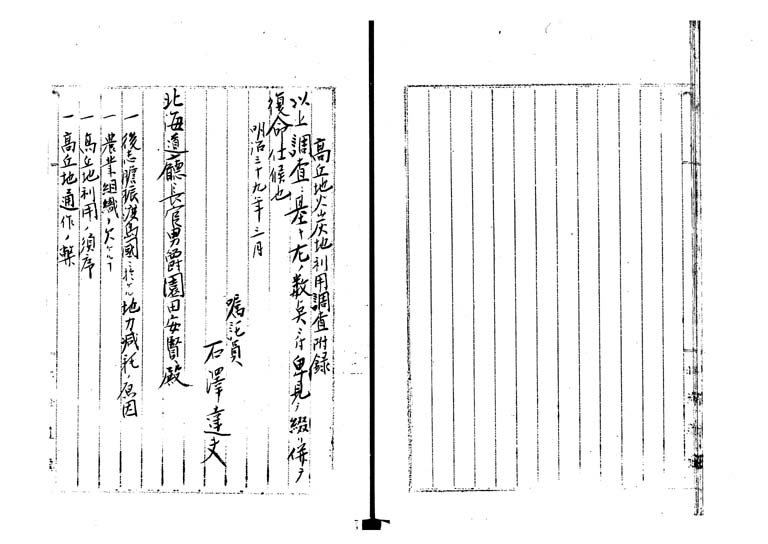 高丘地火山灰地利用調査附録
以上調査ニ基キ左ノ数点ニ付卑見ヲ綴リ併テ
復命仕候也
明治三十九年三月
嘱託員
石澤達夫
北海道廳長官男爵園田安賢殿
一後志膽振渡島國ニ於ケル地力減耗ノ原因
一農業組織ノ欠
一高丘地利用ノ須序
一高丘地通作ノ弊